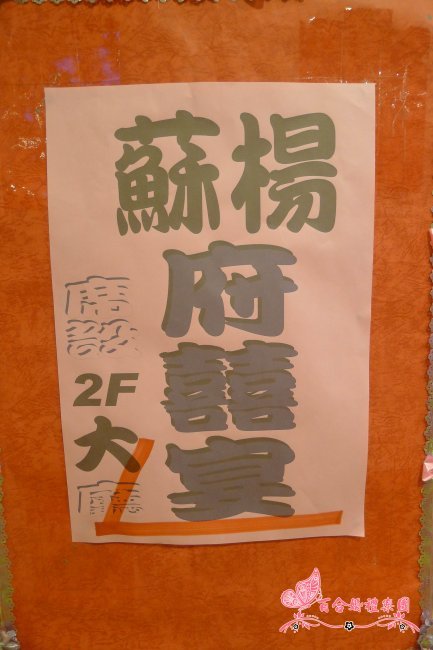 楊蘇
府
囍
宴
席設
2F
大廳
百合婚禮樂團